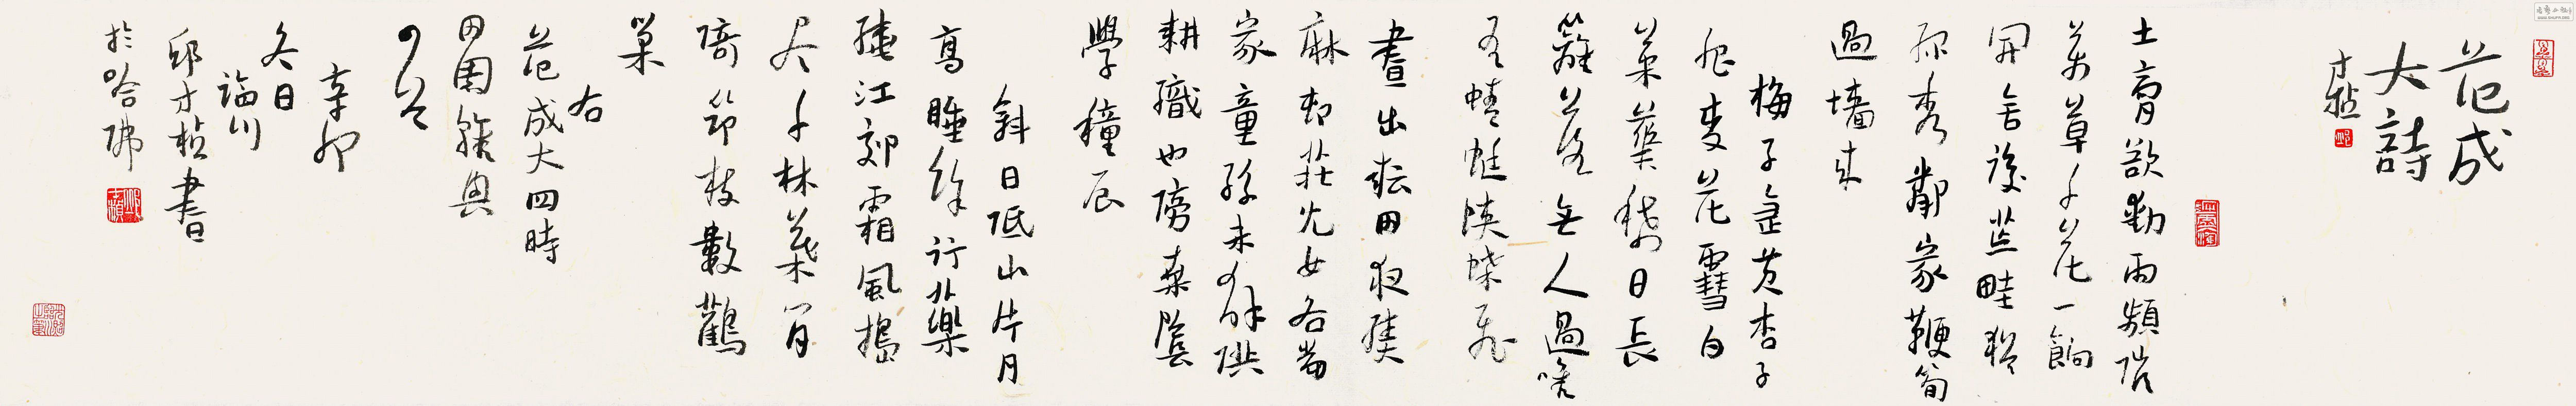 范成
大詩
才楨
土膏欲動雨頻催
萬草千花一餉
開舍後荒畦猶
綠秀鄰家鞭筍
過墻來
梅子金黃杏子
肥麥花雪白
菜葉稀日長
籬落無人過唯
有蜻蜓蛱蝶飛
晝出耘田夜績
麻村莊兒女各當
家童孫未解供
耕織也傍桑陰
學種瓜
斜日低山片月
高睡餘行藥
繞江郊霜風搗
盡千林葉閒
倚筇枝數鸛
巢
右
范成大四時
田園雜興
四首
辛卯
冬日
臨川
邱才楨書
於哈佛